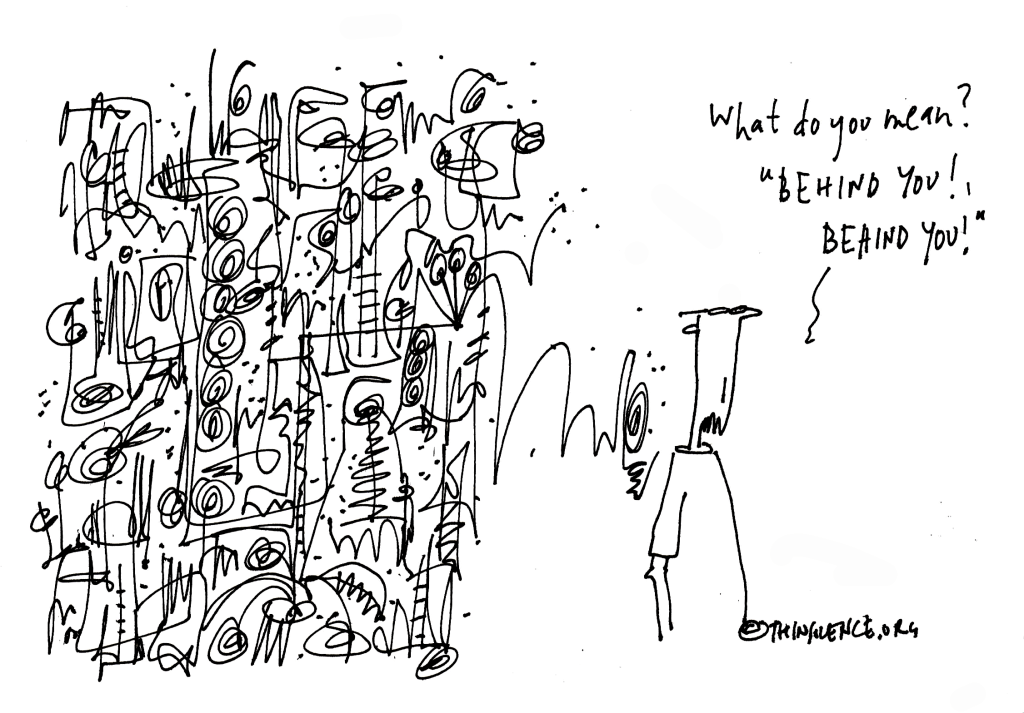 What do you mean?
"BEHIND YOU!,
BEHIND YOU!"